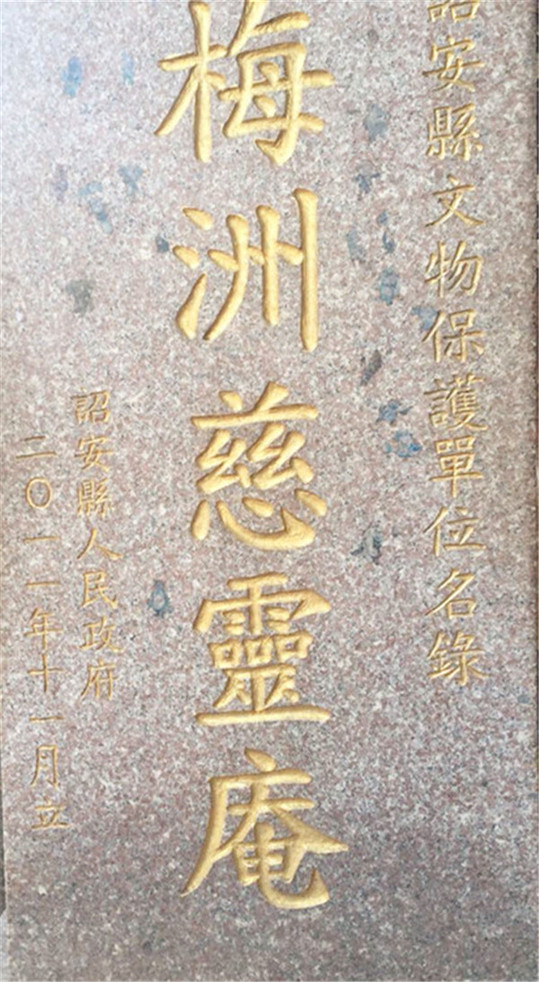 詔安縣文物保護單位名錄
梅洲慈靈庵
詔安縣人民政府
二〇一一年十一月立